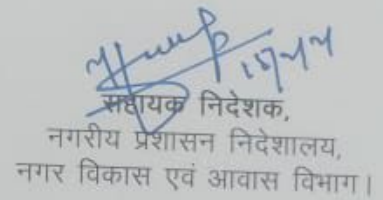 सहायक निदेशक,
नगरीय प्रशासन निदेशालय,
नगर विकास एवं आवास विभाग।